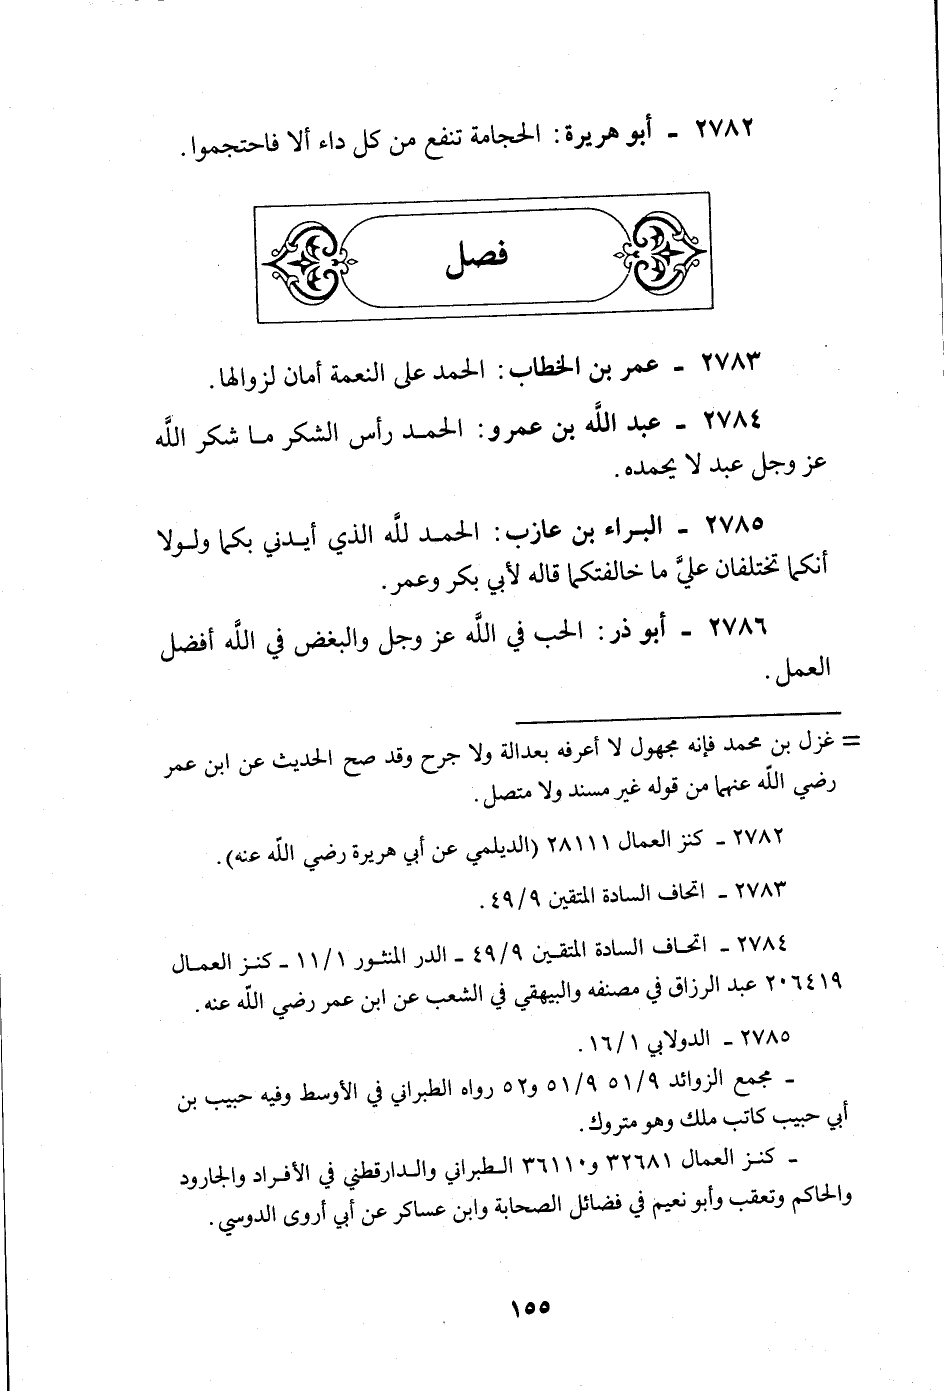 ٢٧٨٢ - أبو هريرة: الحجامة تنفع من كل داء ألا فاحتجموا.
فصل
٢٧٨٣ - عمر بن الخطاب: الحمد على النعمة أمان لزوالها.
٢٧٨٤ - عبد اللَّه بن عمرو: الحمد رأس الشكر ما شكر اللَّه
عز وجل عبد لا يحمده.
٢٧٨٥ - البراء بن عازب: الحمد للَّه الذي أيدني بكما ولولا
أنكما تختلفان عليَّ ما خالفتكما قاله لأبي بكر وعمر.
٢٧٨٦ - أبو ذر: الحب في اللَّه عز وجل والبغض في اللَّه أفضل
العمل.
= غزل بن محمد فإنه مجهول لا أعرفه بعدالة ولا جرح وقد صح الحديث عن ابن عمر
رضي اللَّه عنهما من قوله غير مسند ولا متصل.
٢٧٨٢ - كنز العمال ٢٨١١١ (الديلمي عن أبي هريرة رضي اللَّه عنه).
٢٧٨٣ - اتحاف السادة المتقين ٤٩/٩.
٢٧٨٤ - اتحاف السادة المتقين ٤٩/٩ - الدر المنثور ١١/١ - كنز العمال
٢٠٦٤١٩ عبد الرزاق في مصنفه والبيهقي في الشعب عن ابن عمر رضي اللَّه عنه.
٢٧٨٥ - الدولابي ١٦/١.
- مجمع الزوائد ٥١/٩ ٥١/٩ و٥٢ رواه الطبراني في الأوسط وفيه حبيب بن
أبي حبيب كاتب ملك وهو متروك.
- كنز العمال ٣٢٦٨١ و٣٦١١٠ الطبراني والدارقطني في الأفراد والجارود
والحاكم وتعقب وأبو نعيم في فضائل الصحابة وابن عساكر عن أبي أروى الدوسي.
١٥٥